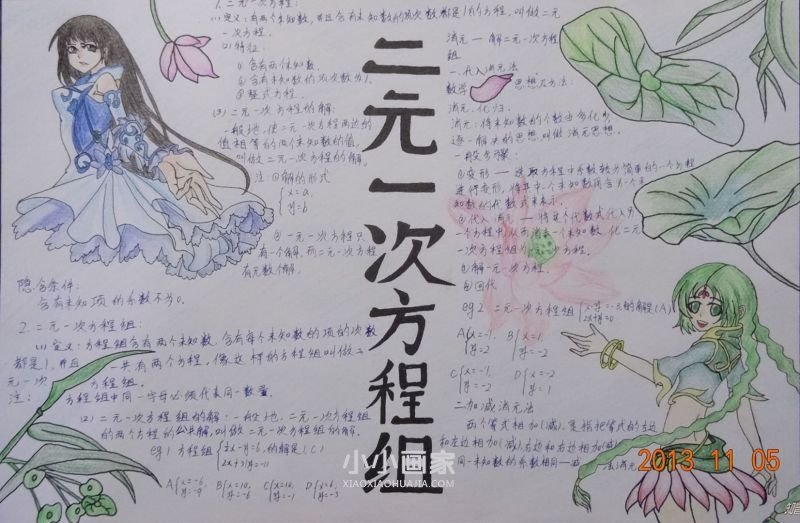 1. 二元一次方程:
(1) 定义: 有两个未知数, 并且含有未知数的项次数都是1的方程, 叫做二元
一次方程.
(2) 特征:
① 含有两个未知数.
② 含有未知数的项次数为1.
③ 整式方程.
(3) 二元一次方程的解:
一般地, 使二元一次方程两边的
值相等的两个未知数的值,
叫做二元一次方程的解.
注: ①解的形式
{x=a,
y=b
② 一元一次方程只
有一个解, 而二元一次方程
有无数个解.
隐含条件:
含有未知项的系数不为0.
2. 二元一次方程组:
(1) 定义: 方程组含有两个未知数, 含有每个未知数的项的次数
都是1, 并且一共有两个方程, 像这样的方程组叫做二
元一次方程组.
注: 方程组中同一字母必须代表同一数量.
(2) 二元一次方程组的解: 一般地, 二元一次方程组
的两个方程的公共解, 叫做二元一次方程组的解.
eg1 方程组 的解是 (C)
二元一次方程组
消元——解二元一次方程
组
一. 代入消元法
数学思想及方法:
消元, 化归.
消元: 将未知数的个数由多化少,
逐一解决的思想, 叫做消元思想.
一般步骤:
①变形——选取方程中系数较为简单的一个方程
进行变形, 将其中一个未知数用含另一个未
知数的代数式来表示.
②代入消元——将这个代数式代入另
一个方程中从而消去一个未知数, 化二元
一次方程组为一元一次方程.
③解一元一次方程.
④回代
eg2 二元一次方程组 的解是(A)
A{x=-1, B{x=1,
y=2 y=-2
C{x=-1, D{x=-2
y=-2 y=1
二加减消元法
两个等式相加(减), 是指把等式的左边
和左边相加(减), 右边和右边相加(减)
小小画家
XIAOXIAOHUAJIA.COM
2013 11 05